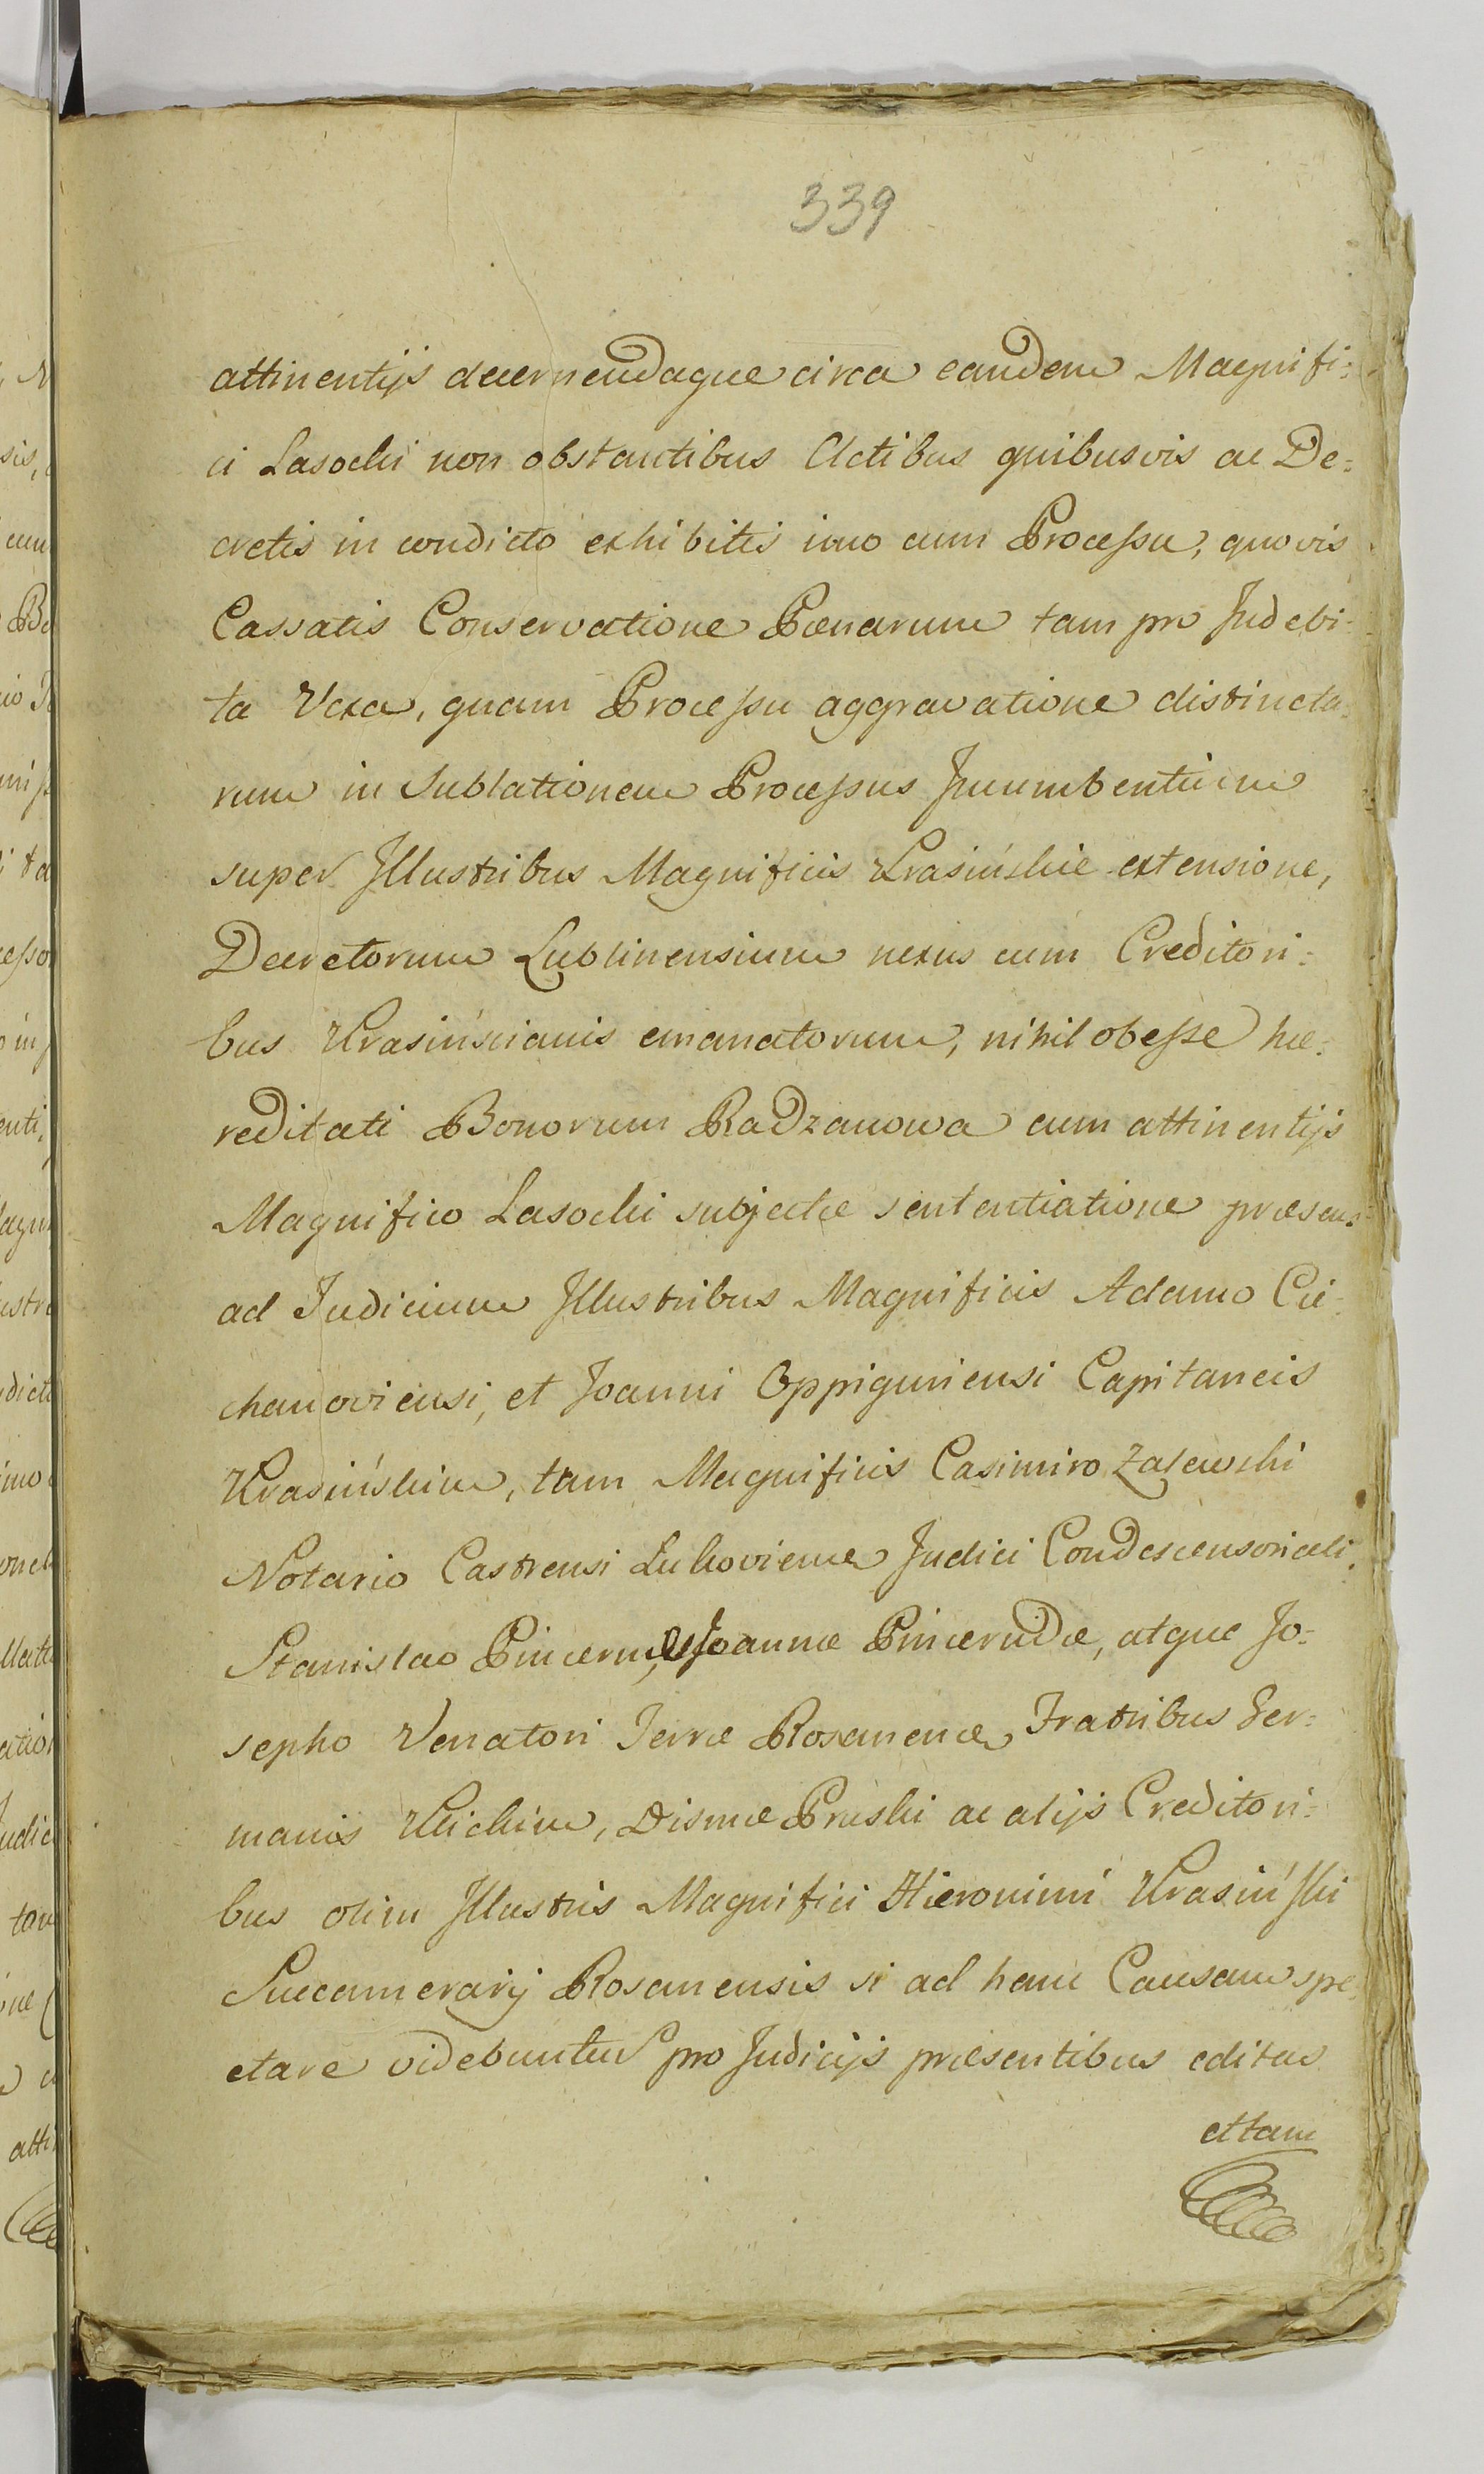 339
attinentijs decernendaque circa eandem Magnifi=
ci Lasocki non obstantibus Actibus quibusvis ac De=
cretis in condicto exhibitis imo cum Processu, quovis
Cassatis Conservatione Pœnarum tam pro Indebi=
ta Vexa, quam Processu aggravatione distincta=
rum in Sublationem Processus Incumbentium
super Illustribus Magnificis Krasińskie extensione,
Decretorum Lublinensium nexus cum Creditori=
bus Krasińscianis emanatorum, nihil obesse hæ=
reditati Bonorum Radzanowa cum attinentijs
Magnifico Lasocki subjectæ sententiatione præsens
ad Judicium Illustribus Magnificis Adamo Cie=
chanoviensi, et Joanni Oppiguniensi Capitaneis
Krasińskim, tam Magnificis Casimiro Zalewski
Notario Castrensi Lukoviensæ Judici Condescensoriali,
Stanislao Pincernæ, Joannæ Pincernidæ, atque Jo=
sepho Venatori Terræ Rosanensæ Fratribus Ger=
manis Klickim, Dismæ Pruski ac alijs Creditori=
bus olim Illustris Magnifici Hieronimi Krasiński
Succamerarij Rosanensis si ad hanc Causam spe=
ctare videbuntur pro Judicijs præsentibus editas
et tam